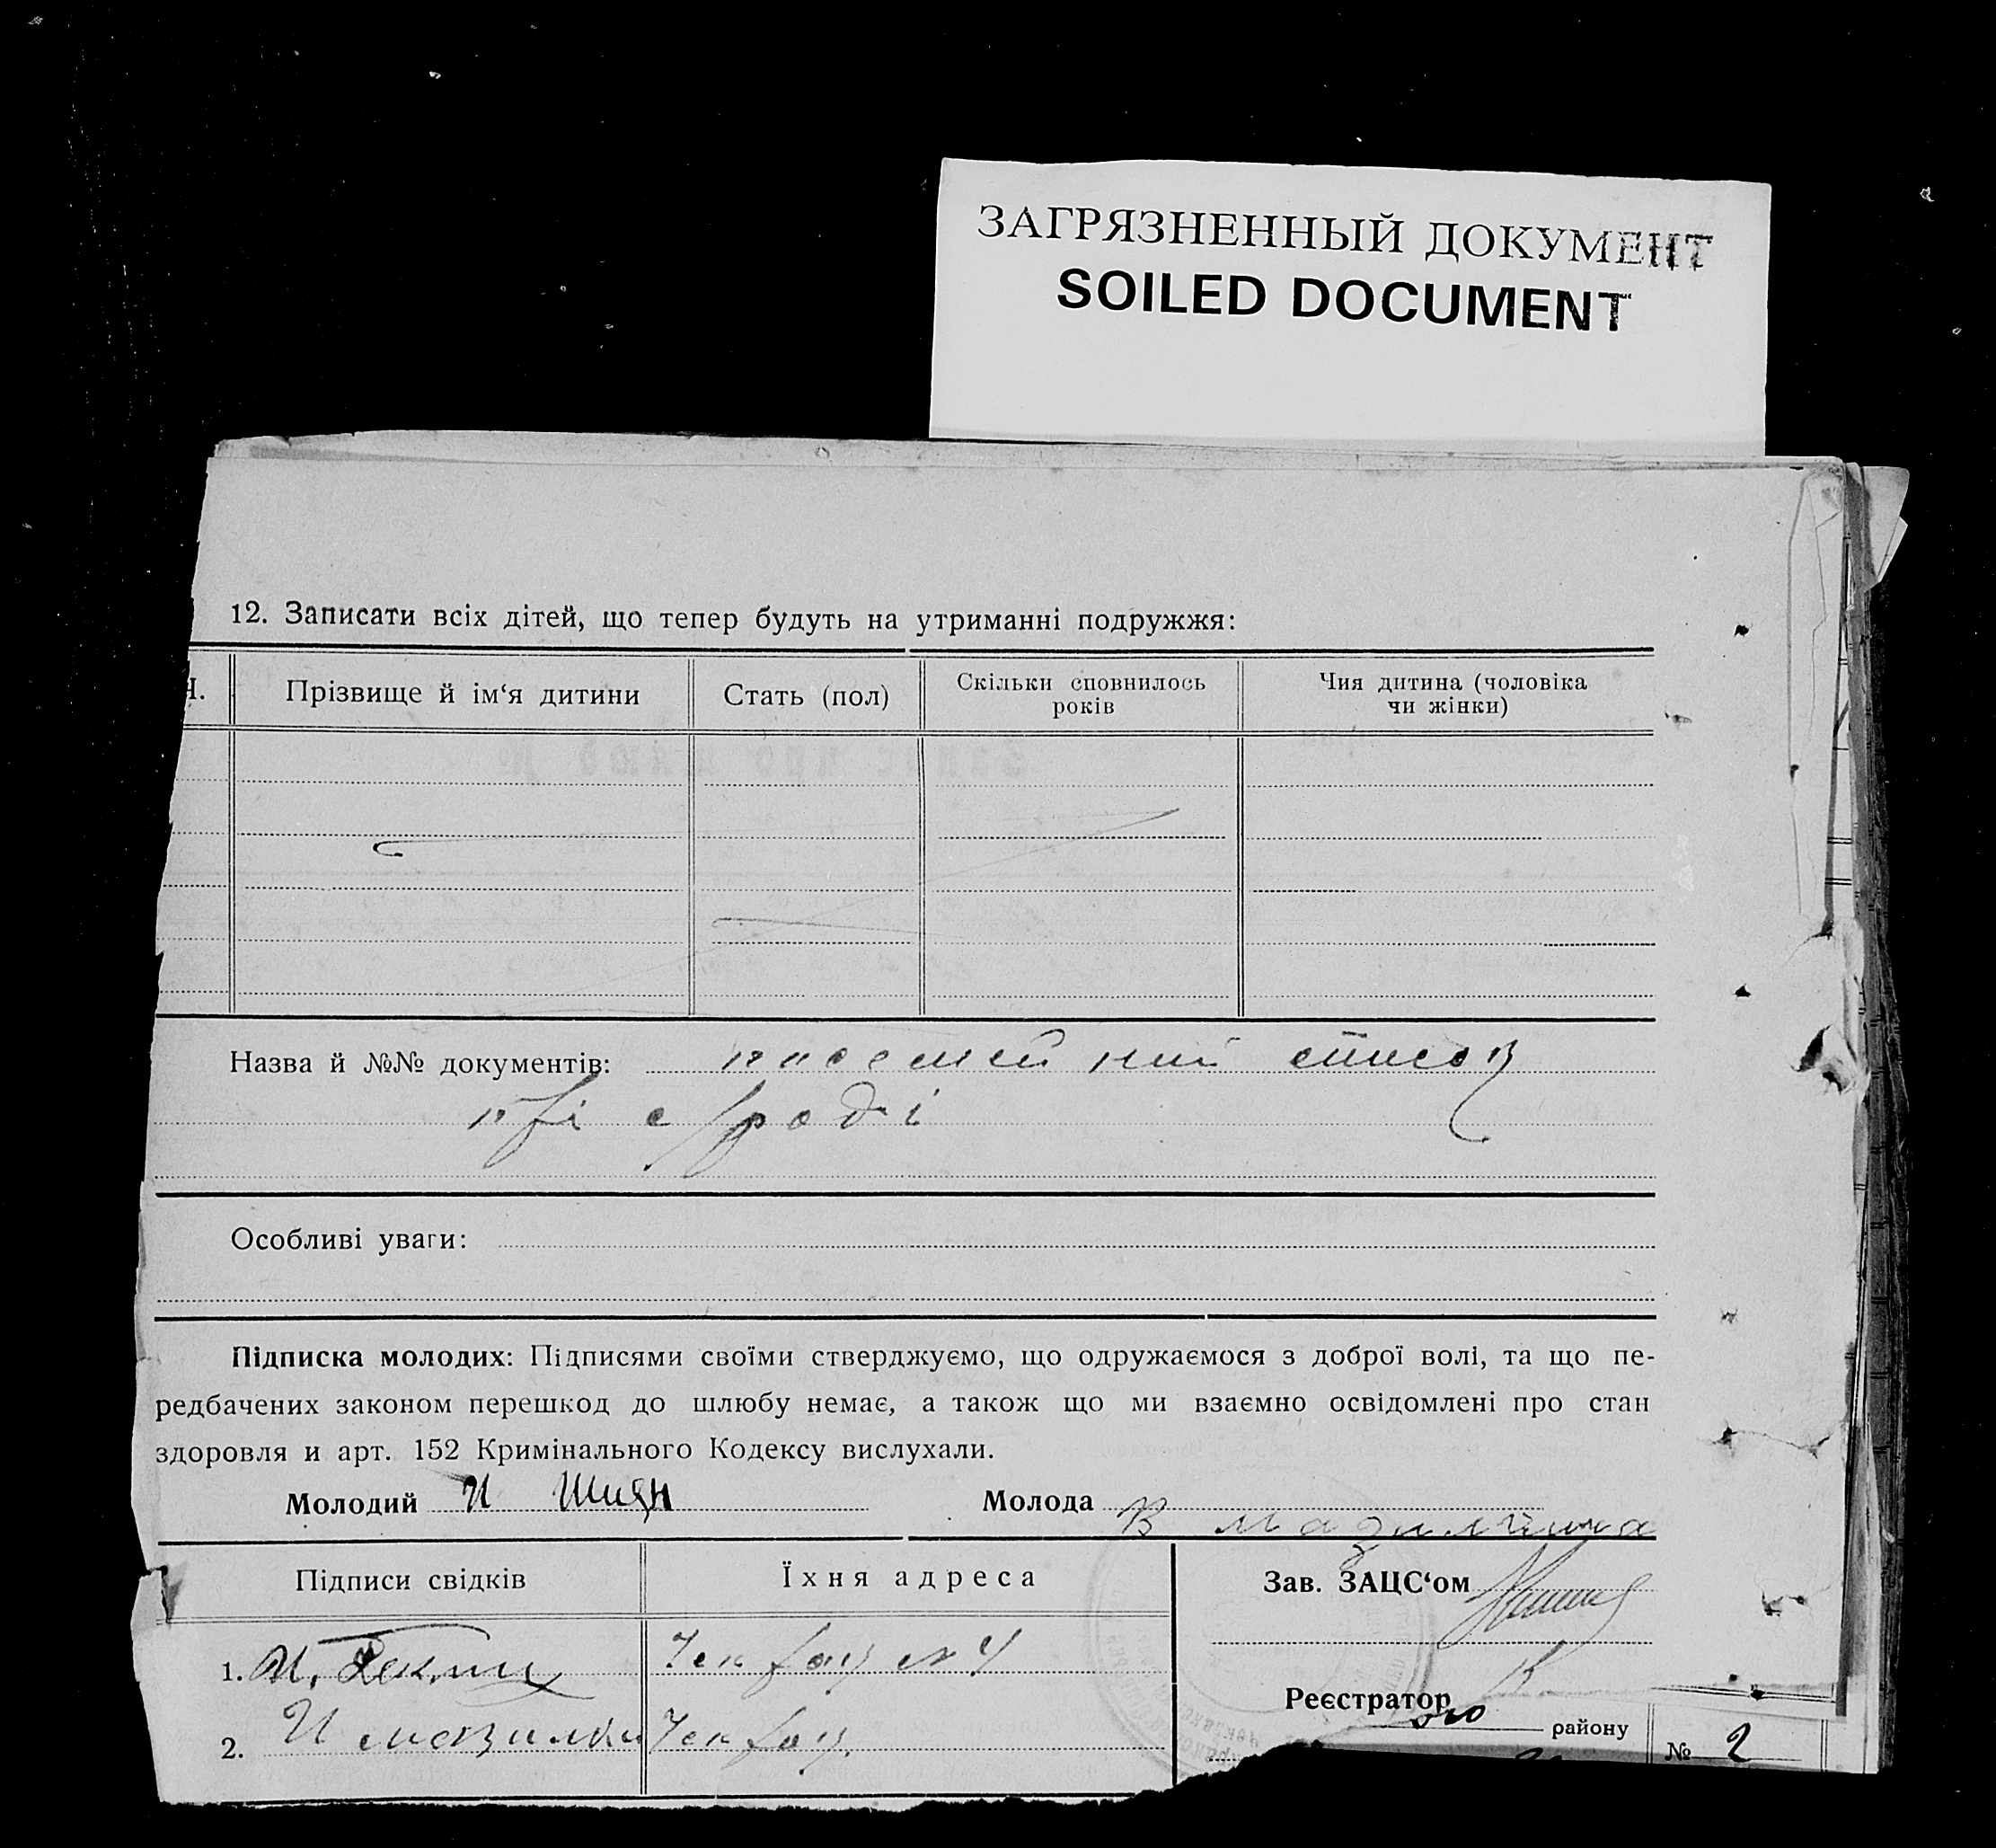 ЗАГРЯЗНЕННЫЙ ДОКУМЕНТ
SOILED DOCUMENT
12. Записати всіх дітей, що тепер будуть на утриманні подружжя:
Прізвище й ім‘я дитини
Стать (пол)
Скільки сповнилось
років
Чия дитина (чоловіка
чи жінки)
Назва й №№ документів: список
Особливі уваги:
Підписка молодих: Підписями своїми стверджуємо, що одружаємося з доброї волі, та що пе-
редбачених законом перешкод до шлюбу немає, а також що ми взаємно освідомлені про стан
здоровля и арт. 152 Кримінального Кодексу вислухали.
Молодий И Шиян
Молода В
Підписи свідків
Їхня адреса
Зав. ЗАЦС‘ом
1. И.
2. И
Реєстратор
району
№ 2